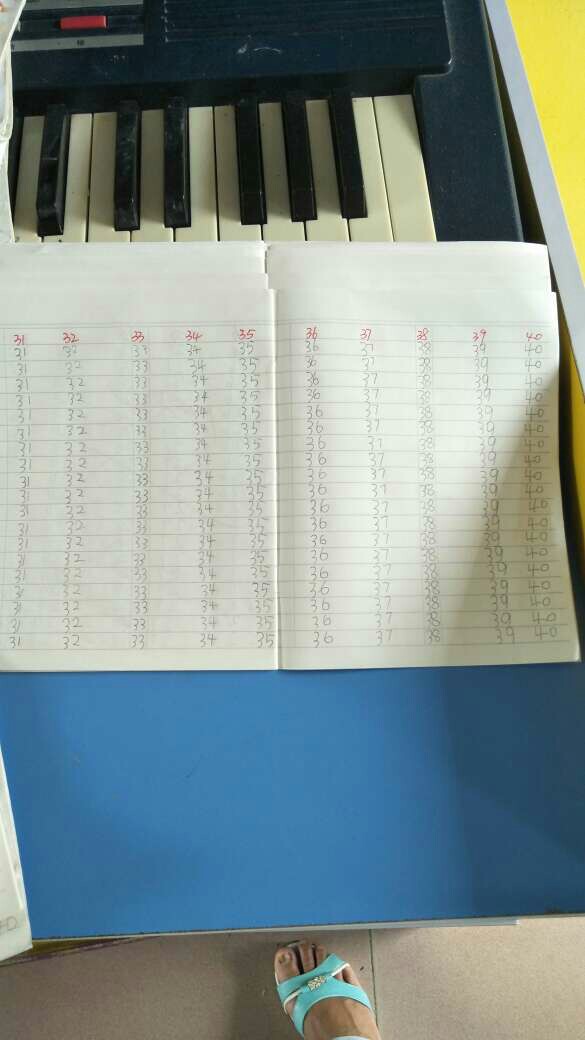 31 32 33 34 35 36 37 38 39 40
31 32 33 34 35 36 37 38 39 40
31 32 33 34 35 36 37 38 39 40
31 32 33 34 35 36 37 38 39 40
31 32 33 34 35 36 37 38 39 40
31 32 33 34 35 36 37 38 39 40
31 32 33 34 35 36 37 38 39 40
31 32 33 34 35 36 37 38 39 40
31 32 33 34 35 36 37 38 39 40
31 32 33 34 35 36 37 38 39 40
31 32 33 34 35 36 37 38 39 40
31 32 33 34 35 36 37 38 39 40
31 32 33 34 35 36 37 38 39 40
31 32 33 34 35 36 37 38 39 40
31 32 33 34 35 36 37 38 39 40
31 32 33 34 35 36 37 38 39 40
31 32 33 34 35 36 37 38 39 40
31 32 33 34 35 36 37 38 39 40
31 32 33 34 35 36 37 38 39 40
31 32 33 34 35 36 37 38 39 40